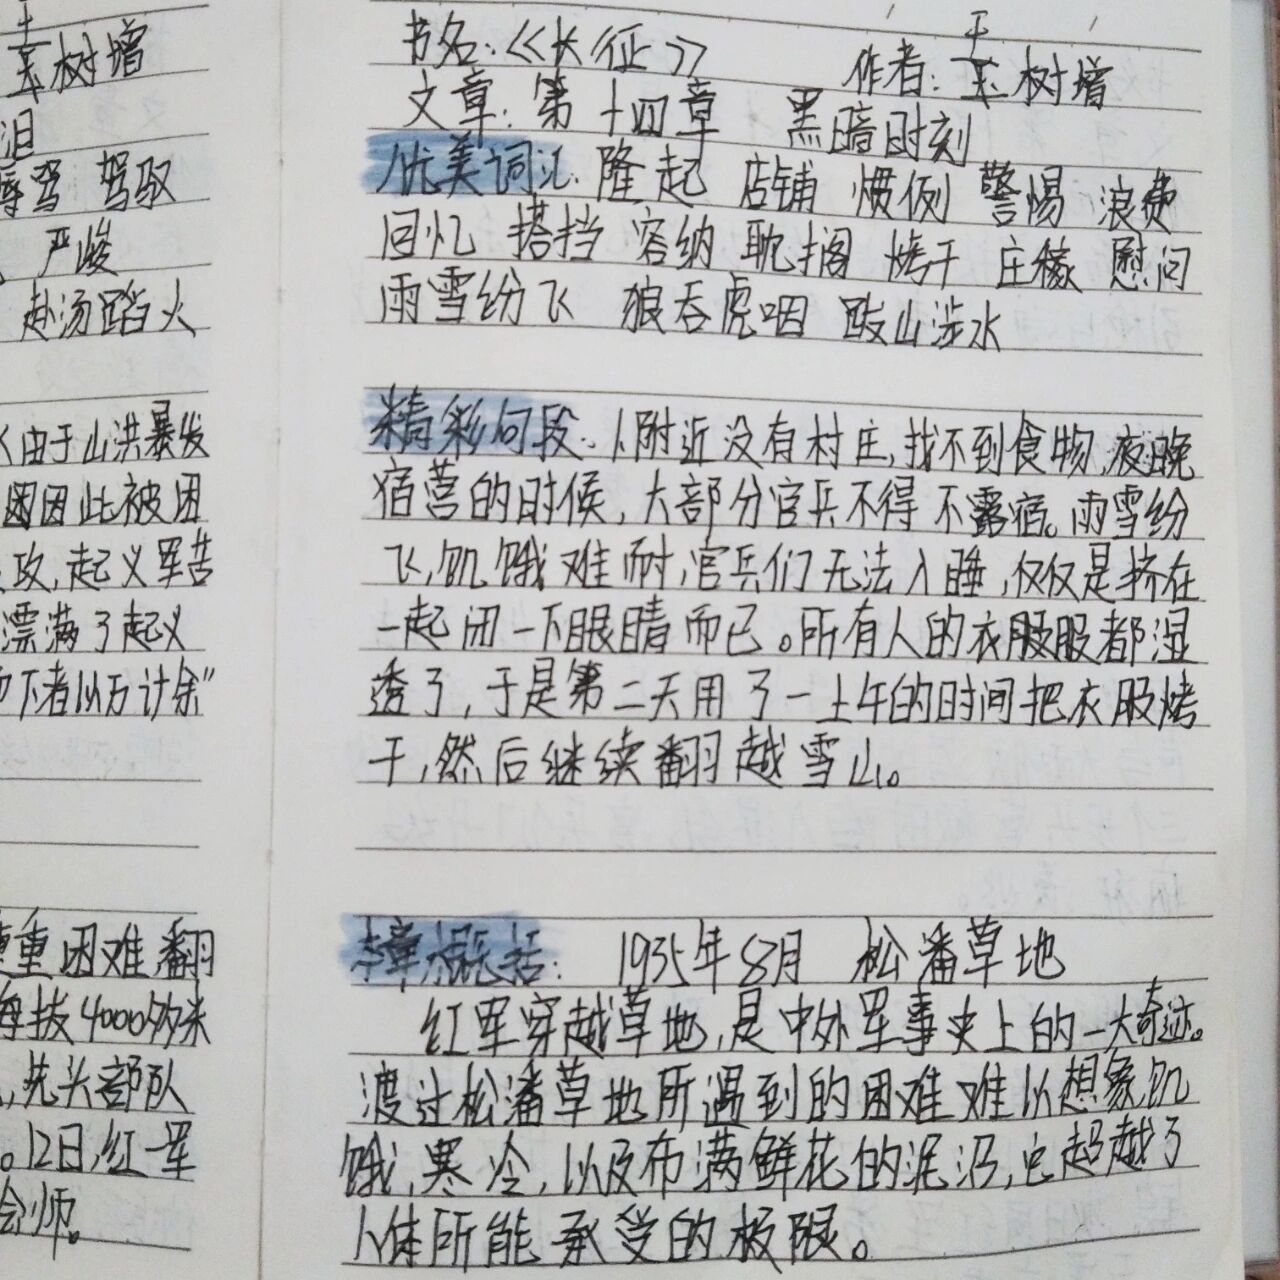 王树增
泪
驾 驾驭
严峻
赴汤蹈火
由于山洪暴发
因此被困
攻,起义军苦
漂满了起义
下者以万计余”
重困难翻
海拔4000多米
,先头部队
。12日,红一军
会师。
书名:《长征》 作者:王树增
文章:第十四章 黑暗时刻
优美词汇: 隆起 店铺 惯例 警惕 浪费
回忆 搭挡 容纳 耽搁 烤干 庄稼 慰问
雨雪纷飞 狼吞虎咽 跋山涉水
精彩句段: 1、附近没有村庄,找不到食物,夜晚
宿营的时候,大部分官兵不得不露宿。雨雪纷
飞,饥饿难耐,官兵们无法入睡,仅仅是挤在
一起闭一下眼睛而已。所有人的衣服服都湿
透了,于是第二天用了一上午的时间把衣服烤
干,然后继续翻越雪山。
本章概括: 1935年8月 松潘草地
红军穿越草地,是中外军事史上的一大奇迹。
渡过松潘草地所遇到的困难难以想象饥
饿,寒冷,以及布满鲜花的泥沼,它超越了
人体所能承受的极限。